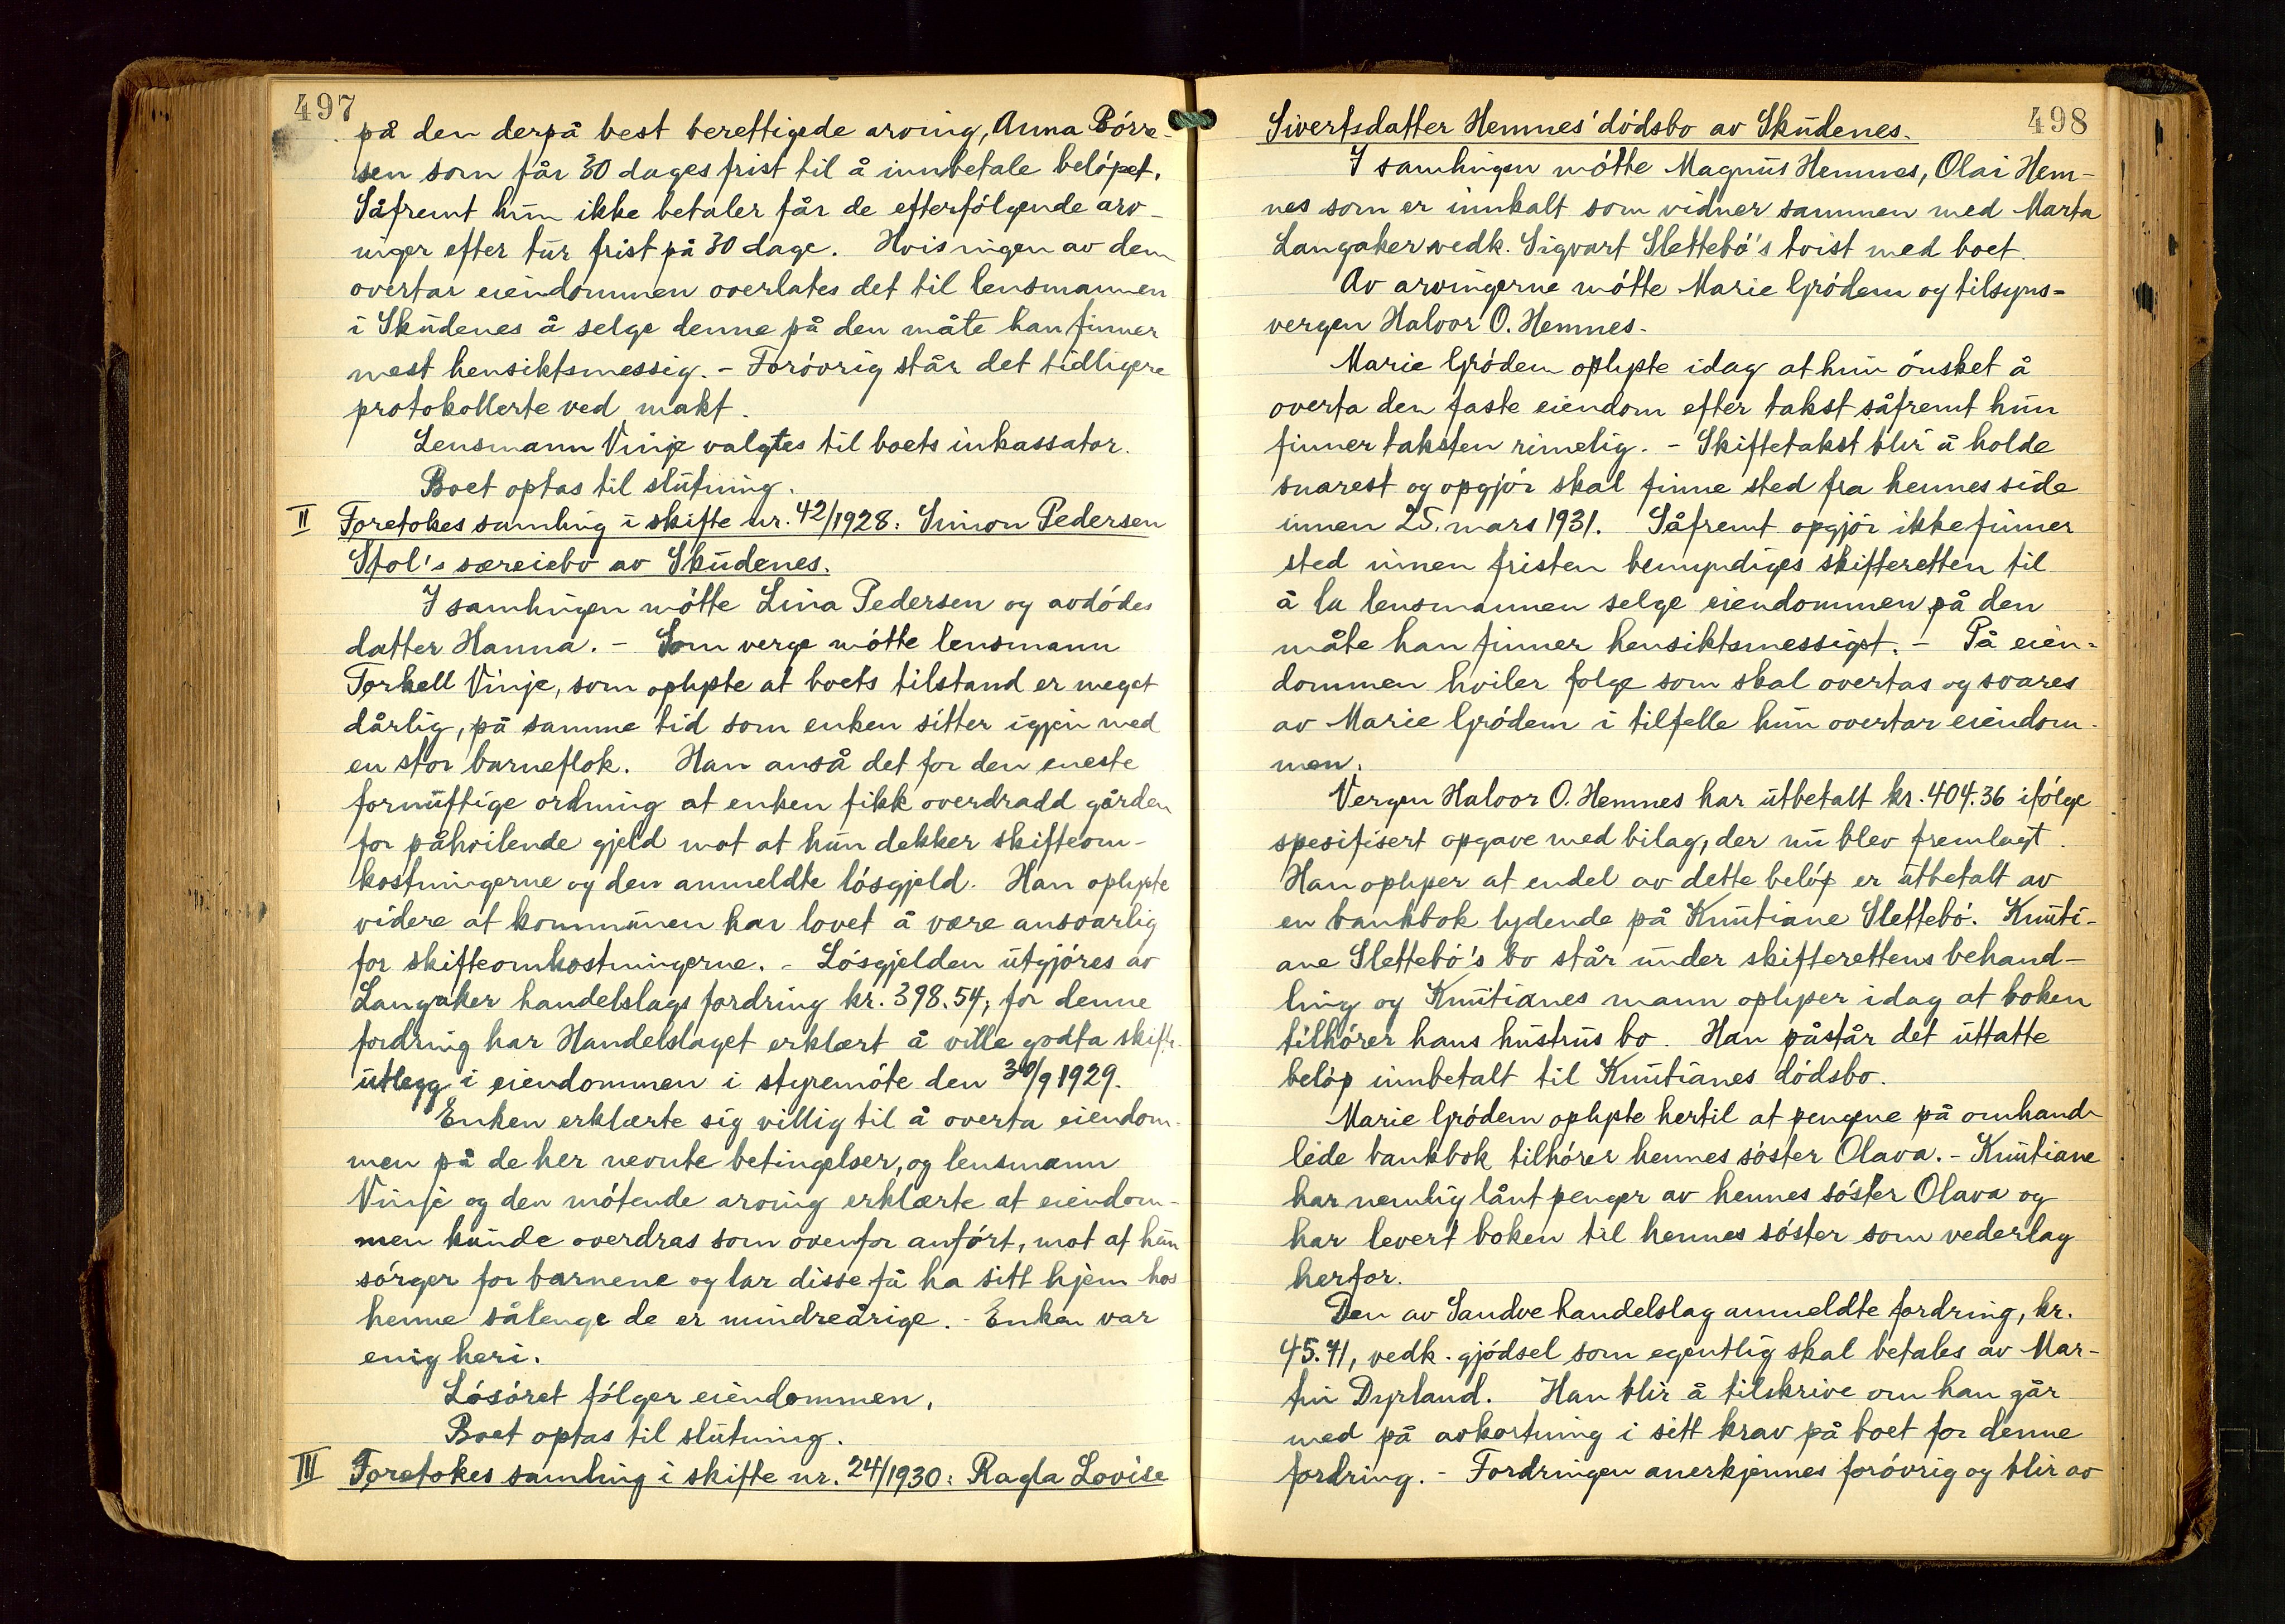 497
på den derpå best berettigede arving, Anna Börre-
sen som får 30 dages frist til å innbetale belöpet.
Såfremt hun ikke betaler får de efterfölgende arv-
inger efter tur frist på 30 dage. Hvis ingen av dem
overtar eiendommen overlates det til lensmannen
i Skudenes å selge denne på den måte han finner
mest hensiktsmessig. - Foróvrig står det tidligere
protokollerte ved makt.
Lensmann Vinje valgtes til boets inkassator.
Boet optas til slutning.
II Foretokes samling i skifte nr. 42/1928: Simon Pedersen
Stol's særeiebo av Skudenes.
I samlingen mötte Lina Pedersen og avdödes
datter Hanna. - Som verge mötte lensmann
Torkell Vinje, som oplyste at boets tilstand er meget
dårlig, på samme tid som enken sitter igjen med
en stor barneflok. Han anså det for den eneste
fornuftige ordning at enken fikk overdradd gården
for påhvilende gjeld mot at hun dekker skifteom-
kostningerne og den anmeldte lösgjeld. Han oplyste
videre at kommunen har lovet å være ansvarlig
for skifteomkostningerne. - Lösgjelden utgjöres av
Langaker handelslags fordring kr. 398.54, for denne
fordring har Handelslaget erklært å ville godta skifte-
utlegg i eiendommen i styremöte den 30/9 1929.
Enken erklærte sig villig til å overta eiendom-
men på de her nevnte betingelser, og lensmann
Vinje og den mötende arving erklærte at eiendom-
men kunde overdras som ovenfor anfört, mot at hun
sörger for barnene og lar disse få ha sitt hjem hos
henne sålenge de er mindreårige. - Enken var
enig heri.
Lösöret fölger eiendommen.
Boet optas til slutning.
III Foretokes samling i skifte nr. 24/1930: Ragla Lovise
498
Sivertsdatter Hemnes' dödsbo av Skudenes.
I samlingen mötte Magnus Hemnes, Olai Hem-
nes som er innkalt som vidner sammen med Marta
Langaker vedk. Sigvart Slettebö's tvist med boet.
Av arvingerne mötte Marie Grödem og tilsyns-
vergen Halvor O. Hemnes.
Marie Grödem oplyste idag at hun önsket å
overta den faste eiendom efter takst såfremt hun
finner taksten rimelig. - Skiftetakst blir å holde
snarest og opgjör skal finne sted fra hennes side
innen 25. mars 1931. Såfremt opgjör ikke finner
sted innen fristen bemyndiges skifteretten til
å la lensmannen selge eiendommen på den
måte han finner hensiktsmessigst. - På eien-
dommen hviler folge som skal overtas og svares
av Marie Grödem i tilfelle hun overtar eiendom-
men.
Vergen Halvor O. Hemnes har utbetalt kr. 404.36 ifölge
spesifisert opgave med bilag, der nu blev fremlagt.
Han oplyser at endel av dette belöp er utbetalt av
en bankbok lydende på Knutiane Slettebö. Knuti-
ane Slettebö's bo står under skifterettens behand-
ling og Knutianes mann oplyser idag at boken
tilhörer hans hustrus bo. Han påstår det uttatte
belöp innbetalt til Knutianes dödsbo.
Marie Grödem oplyste hertil at pengene på omhand-
lede bankbok tilhörer hennes söster Olava. - Knutiane
har nemlig lånt penger av hennes söster Olava og
har levert boken til hennes söster som vederlag
herfor.
Den av Sandve handelslag anmeldte fordring, kr.
45.71, vedk. gjödsel som egentlig skal betales av Mar-
tin Dyrland. Han blir å tilskrive om han går
med på avkortning i sitt krav på boet for denne
fordring. - Fordringen anerkjennes forövrig og blir av